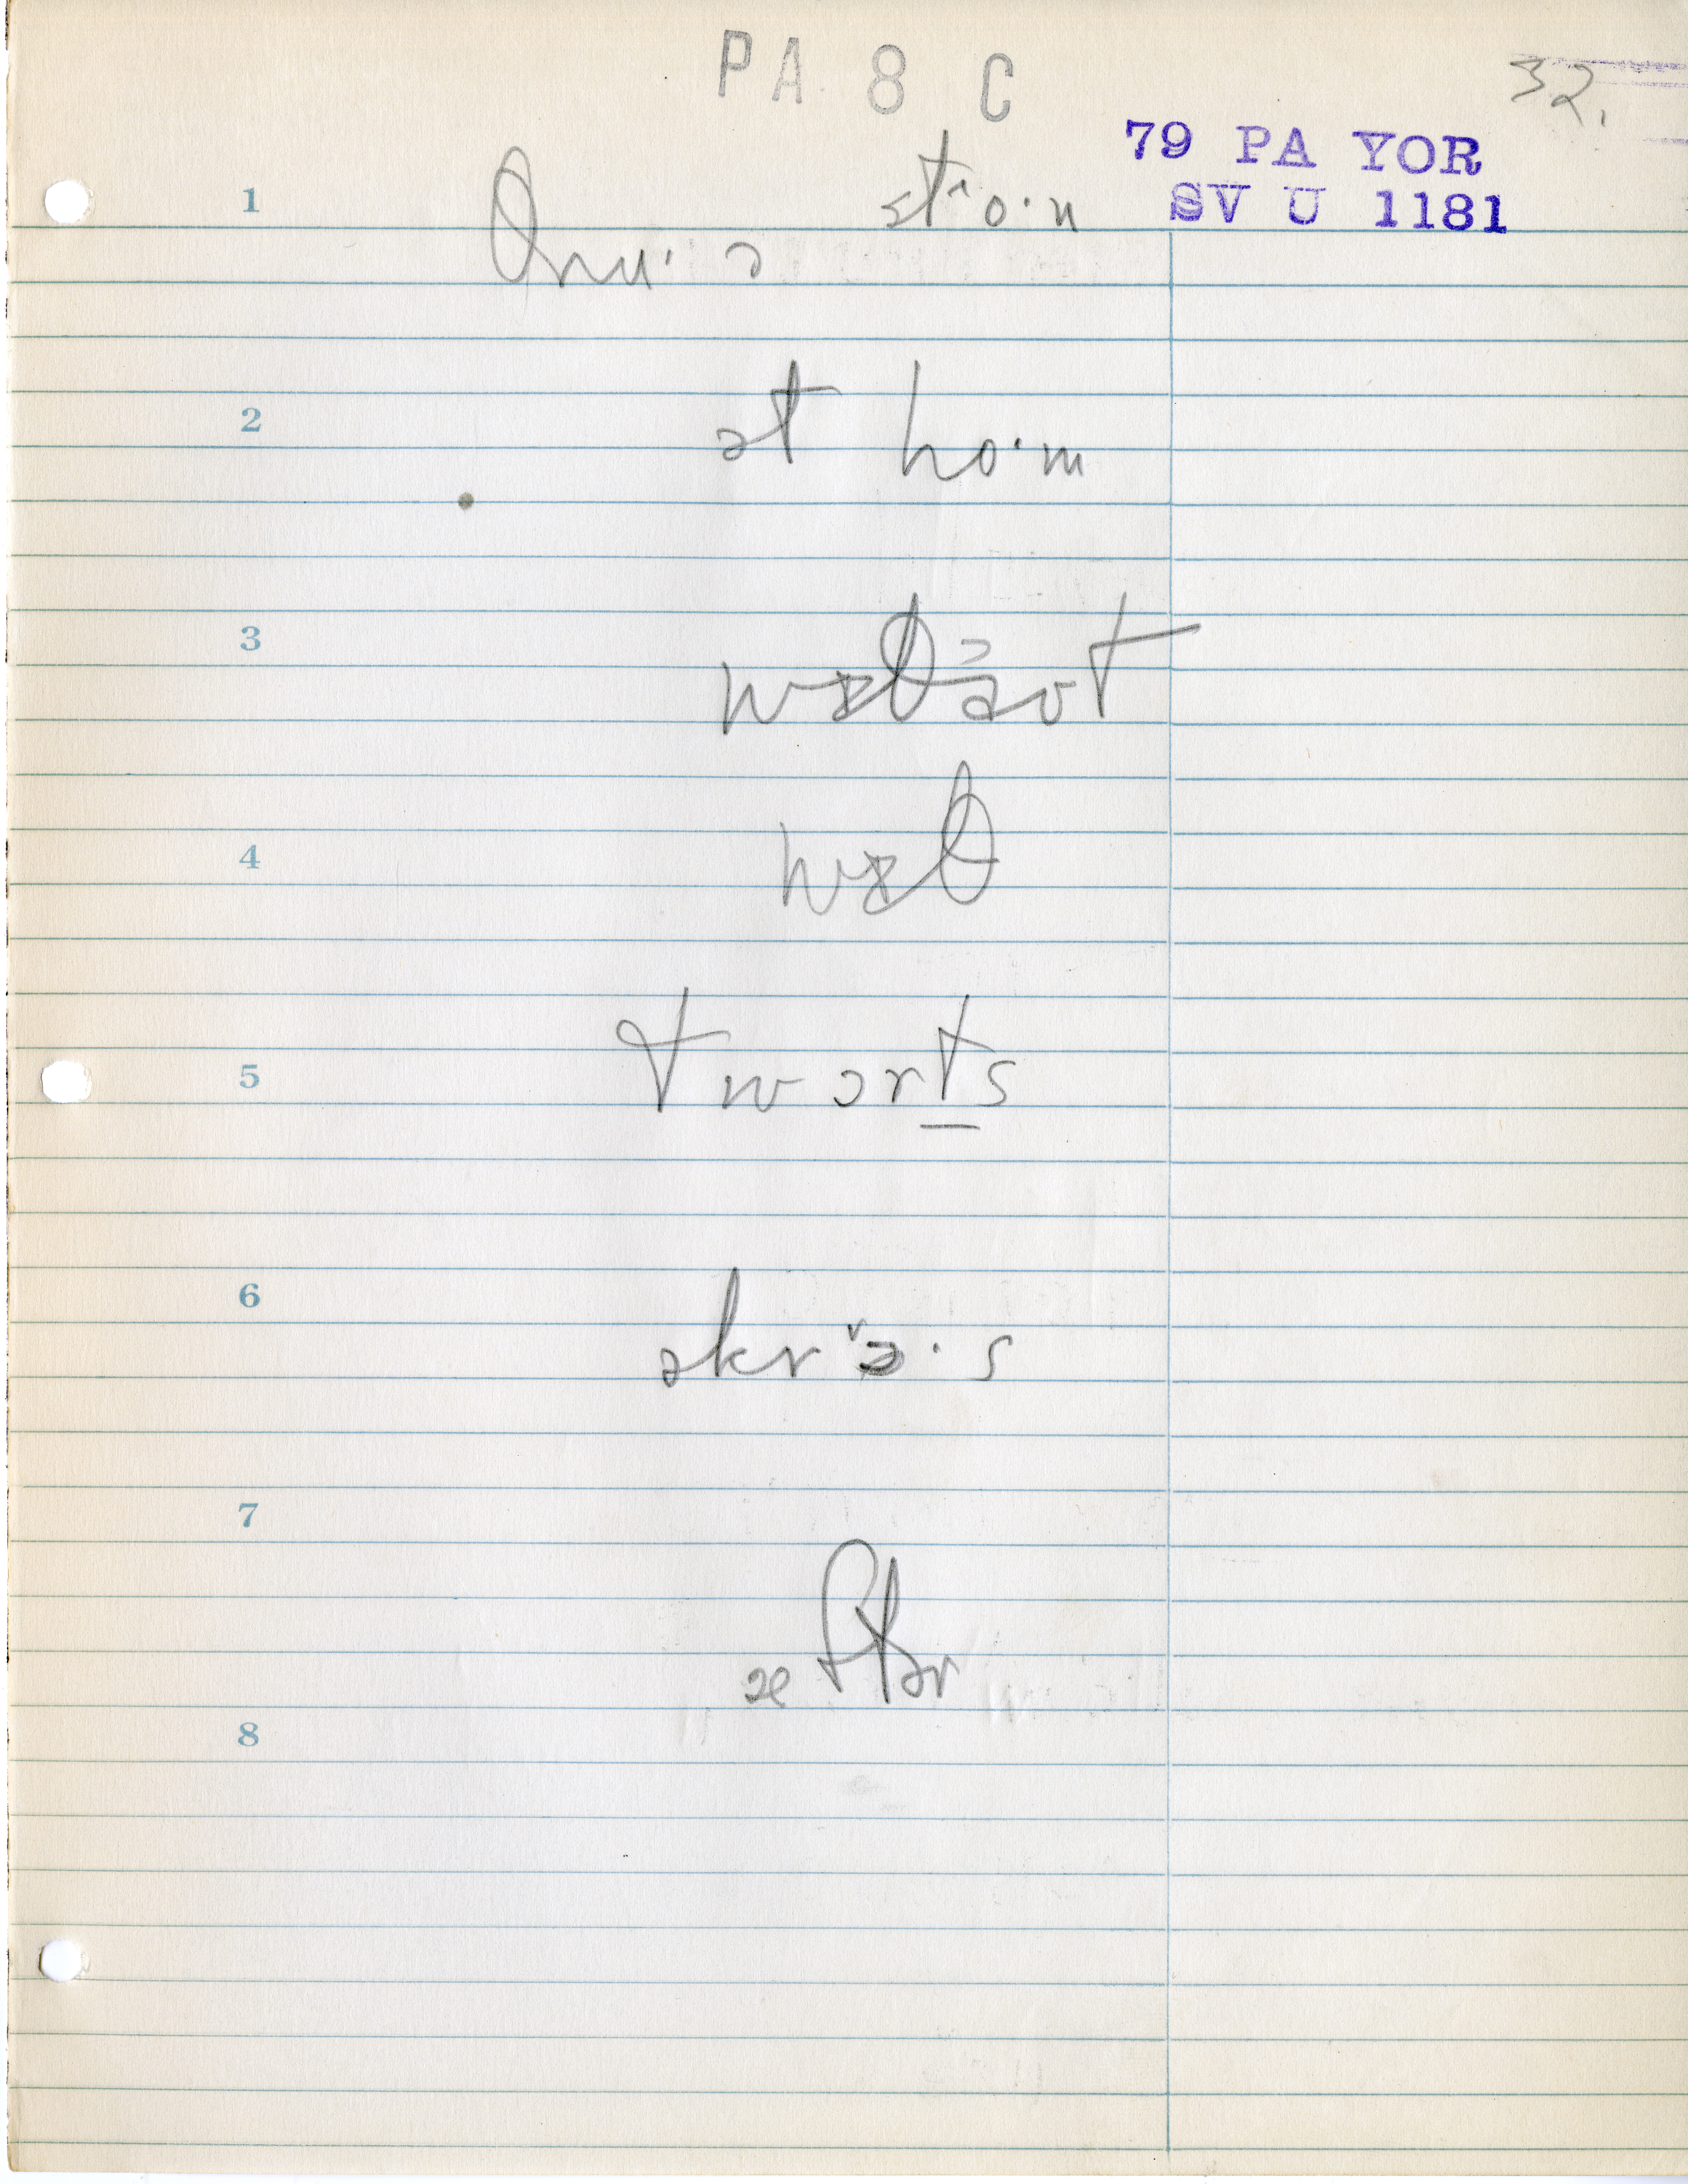 PA 8 C
32.
79 PA YOR
SV U 1181
1 θru· ə st o·n
2 ət ho·m
3 wɪθaʊt
4 wɪθ
5 twɔrts
6 əkrɔ·s
7 æftər
8